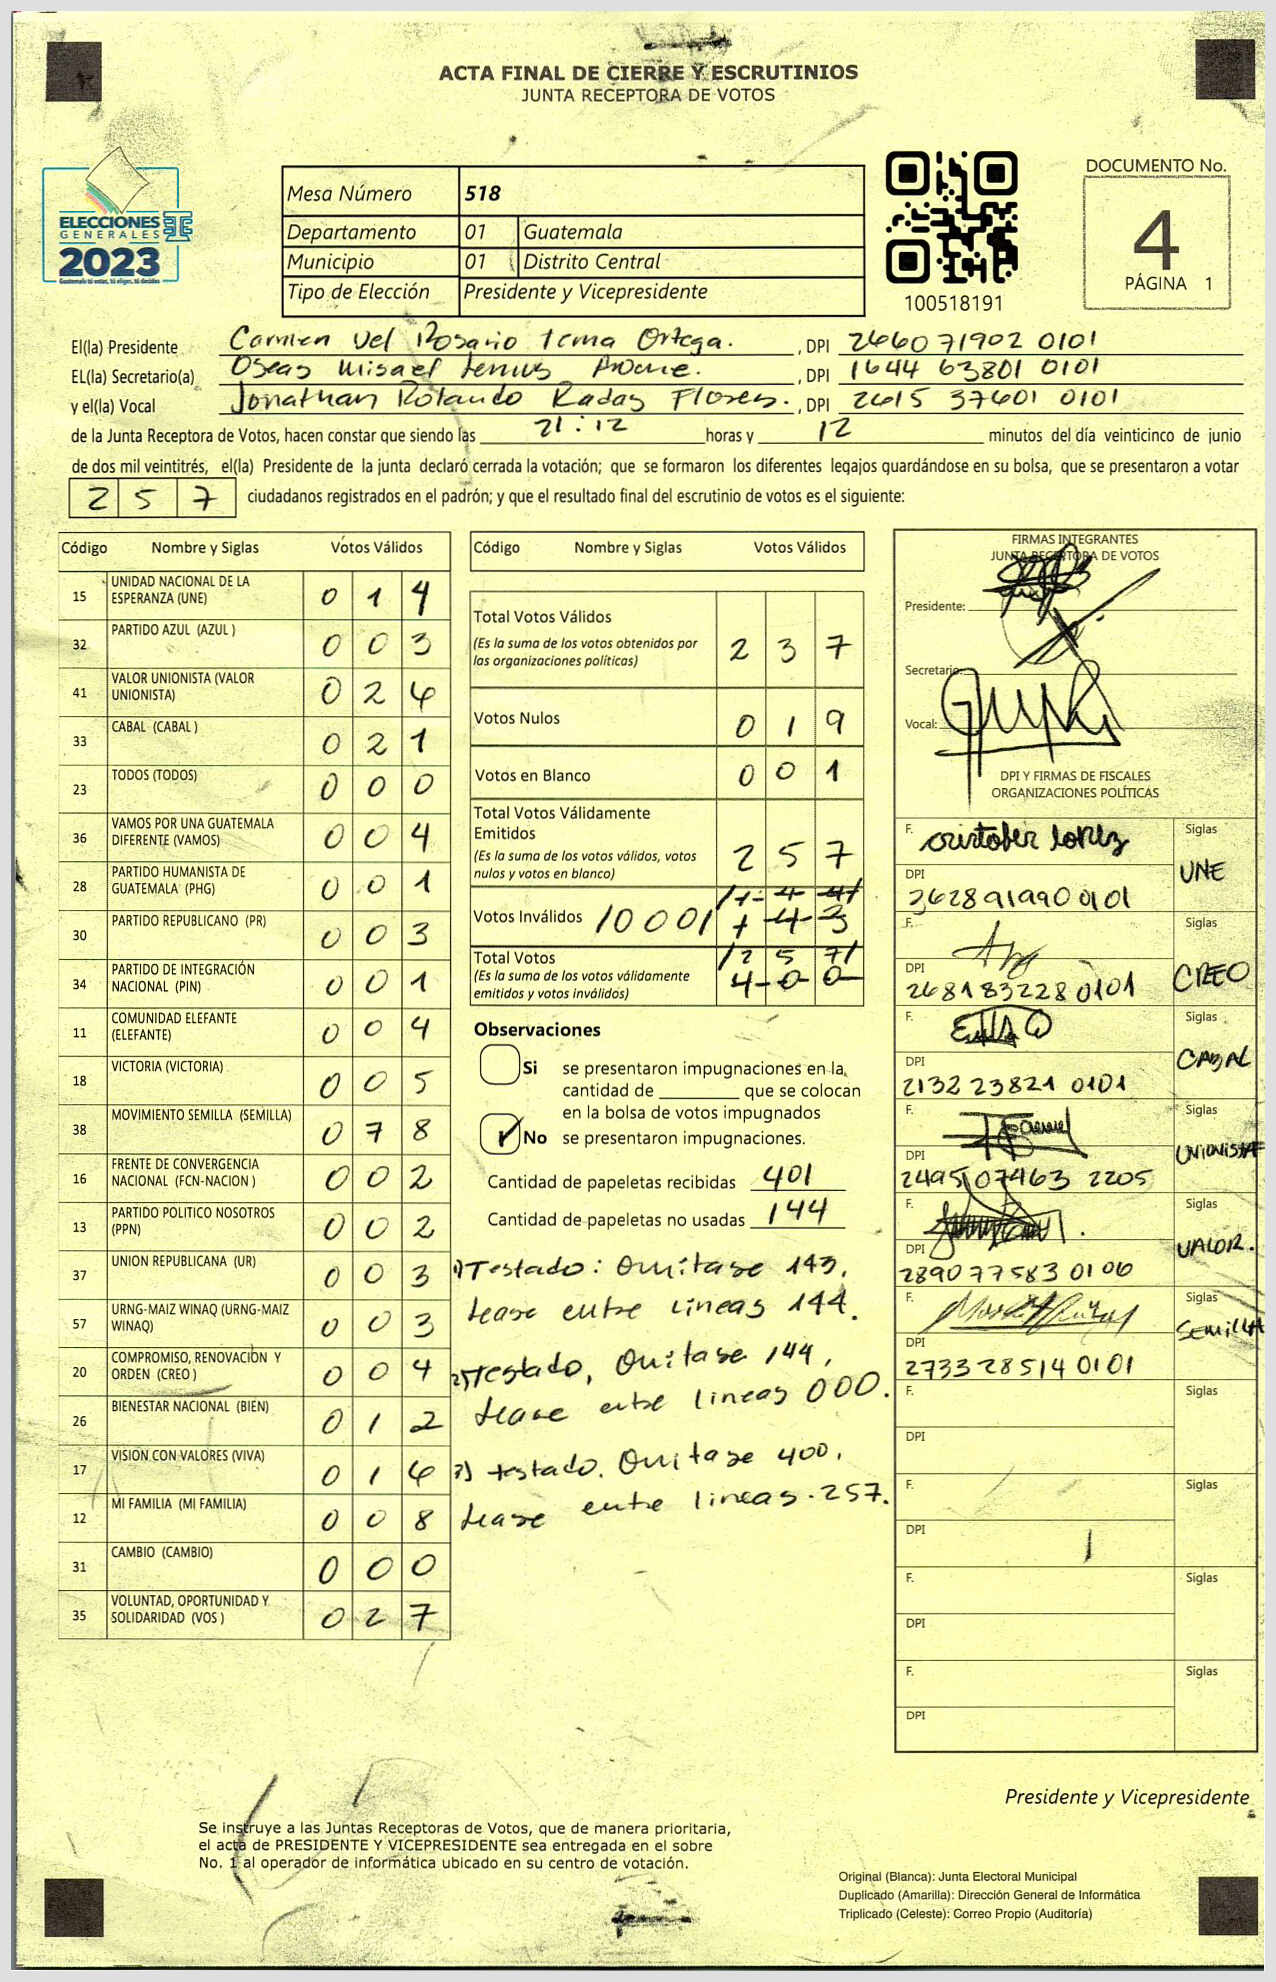 ACTA FINAL DE CIERRE Y ESCRUTINIOS
JUNTA RECEPTORA DE VOTOS
ELECCIONES
GENERALES
2023
Guatemala tú votas, tú eliges, tú decides
Mesa Número 518
Departamento 01 Guatemala
Municipio 01 Distrito Central
Tipo de Elección Presidente y Vicepresidente
100518191
DOCUMENTO No.
4
PÁGINA 1
El(la) Presidente Carmen del Rosario Ortega. , DPI 266071902 0101
EL(la) Secretario(a) Oseas Misael , DPI 1644 63801 0101
y el(la) Vocal Jonathan Rolando Radas Flores. , DPI 2615 37601 0101
de la Junta Receptora de Votos, hacen constar que siendo las 21:12 horas y 12 minutos del día veinticinco de junio
de dos mil veintitrés, el(la) Presidente de la junta declaró cerrada la votación; que se formaron los diferentes legajos guardándose en su bolsa, que se presentaron a votar
257 ciudadanos registrados en el padrón; y que el resultado final del escrutinio de votos es el siguiente:
Código Nombre y Siglas Votos Válidos
15 UNIDAD NACIONAL DE LA ESPERANZA (UNE) 0 1 4
32 PARTIDO AZUL (AZUL ) 0 0 3
41 VALOR UNIONISTA (VALOR UNIONISTA) 0 2 6
33 CABAL (CABAL ) 0 2 1
23 TODOS (TODOS) 0 0 0
36 VAMOS POR UNA GUATEMALA DIFERENTE (VAMOS) 0 0 4
28 PARTIDO HUMANISTA DE GUATEMALA (PHG) 0 0 1
30 PARTIDO REPUBLICANO (PR) 0 0 3
34 PARTIDO DE INTEGRACIÓN NACIONAL (PIN) 0 0 1
11 COMUNIDAD ELEFANTE (ELEFANTE) 0 0 4
18 VICTORIA (VICTORIA) 0 0 5
38 MOVIMIENTO SEMILLA (SEMILLA) 0 7 8
16 FRENTE DE CONVERGENCIA NACIONAL (FCN-NACION ) 0 0 2
13 PARTIDO POLITICO NOSOTROS (PPN) 0 0 2
37 UNION REPUBLICANA (UR) 0 0 3
57 URNG-MAIZ WINAQ (URNG-MAIZ WINAQ) 0 0 3
20 COMPROMISO, RENOVACION Y ORDEN (CREO ) 0 0 4
26 BIENESTAR NACIONAL (BIEN) 0 1 2
17 VISION CON VALORES (VIVA) 0 1 6
12 MI FAMILIA (MI FAMILIA) 0 0 8
31 CAMBIO (CAMBIO) 0 0 0
35 VOLUNTAD, OPORTUNIDAD Y SOLIDARIDAD (VOS ) 0 2 7
Código Nombre y Siglas Votos Válidos
Total Votos Válidos 2 3 7
(Es la suma de los votos obtenidos por
las organizaciones políticas)
Votos Nulos 0 1 9
Votos en Blanco 0 0 1
Total Votos Válidamente
Emitidos 2 5 7
(Es la suma de los votos válidos, votos
nulos y votos en blanco)
Votos Inválidos /000/ /1 4 4/
1 4 3
Total Votos /2 5 7/
(Es la suma de los votos válidamente
emitidos y votos inválidos) 4 0 0
Observaciones
Si se presentaron impugnaciones en la
cantidad de ______ que se colocan
en la bolsa de votos impugnados
No se presentaron impugnaciones.
Cantidad de papeletas recibidas 401
Cantidad de papeletas no usadas 144
1) Testado: Omitase 143,
Lease entre lineas 144.
2) Testado, Omitase 144,
Lease entre lineas 000.
3) testado. Omitase 400,
Lease entre lineas. 257.
FIRMAS INTEGRANTES
JUNTA RECEPTORA DE VOTOS
Presidente:
Secretario:
Vocal:
DPI Y FIRMAS DE FISCALES
ORGANIZACIONES POLÍTICAS
F. cristober Lopez Siglas
UNE
DPI
262891990 0101
F.
CREO
DPI
2681832280101
F. Siglas
CABAL
DPI
2132 23821 0101
F. Siglas
UNIONISTA
DPI
2495 07463 2205
F. Siglas
VALOR.
DPI
289077583 0106
F. Siglas
SEMILLA
DPI
2733 28514 0101
F. Siglas
DPI
F. Siglas
DPI
F. Siglas
DPI
F. Siglas
DPI
Presidente y Vicepresidente
Se instruye a las Juntas Receptoras de Votos, que de manera prioritaria,
el acta de PRESIDENTE Y VICEPRESIDENTE sea entregada en el sobre
No. 1 al operador de informática ubicado en su centro de votación.
Original (Blanca): Junta Electoral Municipal
Duplicado (Amarilla): Dirección General de Informática
Triplicado (Celeste): Correo Propio (Auditoría)